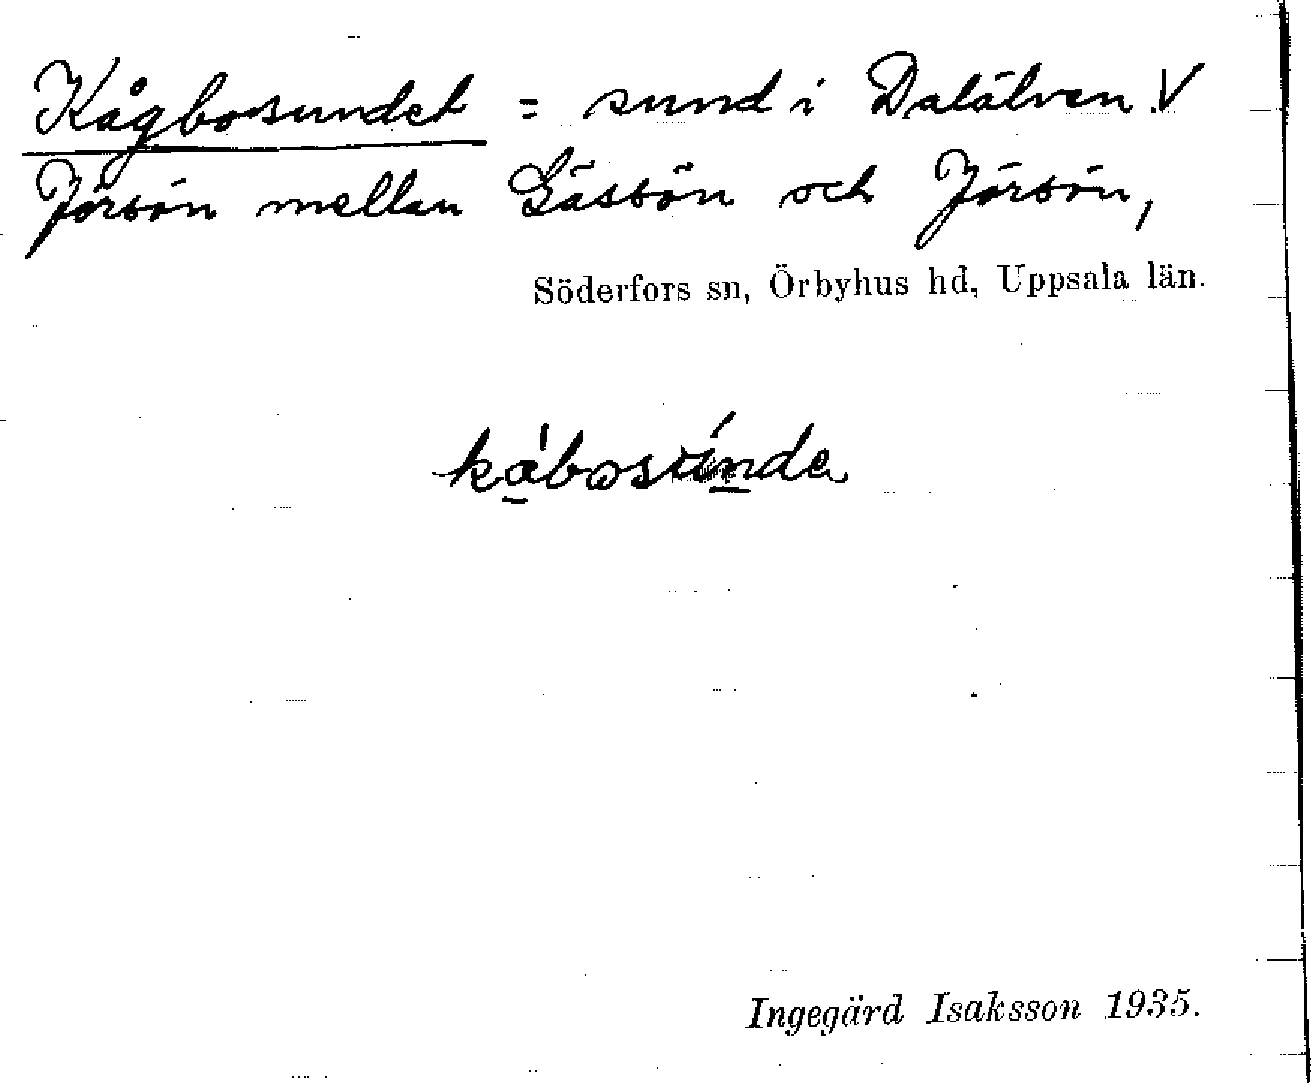 Kågbosundet = sund i Dalälven V
Jörsön mellan Gåsön och Jörsön,
Söderfors sn, Örbyhus hd, Uppsala län.
Ingegärd Isaksson 1935.